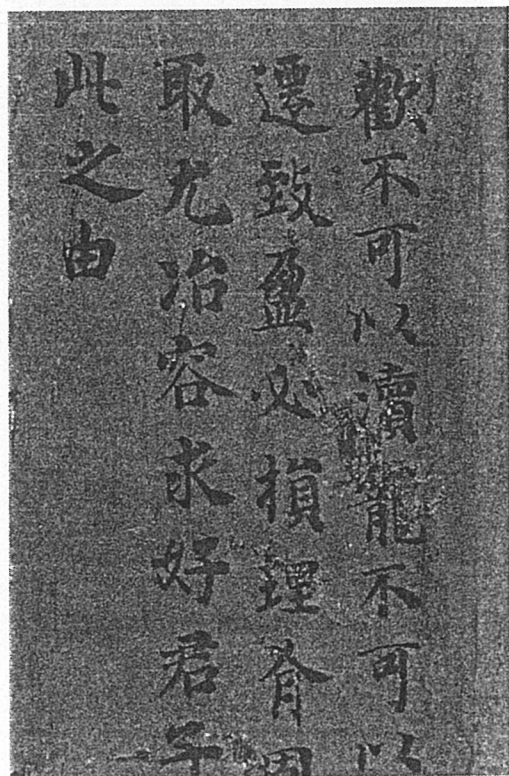 歡不可以瀆寵不可以
遷致盈必損理有固
取尤冶容求好君子
此之由